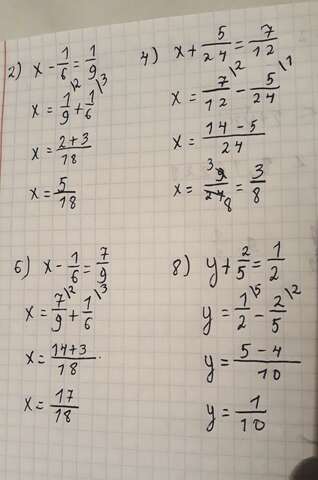 2) x - 1/6 = 1/9
x = 1\2/9 + 1\3/6
x = 2+3/18
x = 5/18
4) x + 5/24 = 7/12
x = 7\2/12 - 5\1/24
x = 14-5/24
x = 3 9/24 8 = 3/8
6) x - 1/6 = 7/9
x = 7\2/9 + 1\3/6
x = 14+3/18
x = 17/18
8) y + 2/5 = 1/2
y = 1\5/2 - 2\2/5
y = 5-4/10
y = 1/10